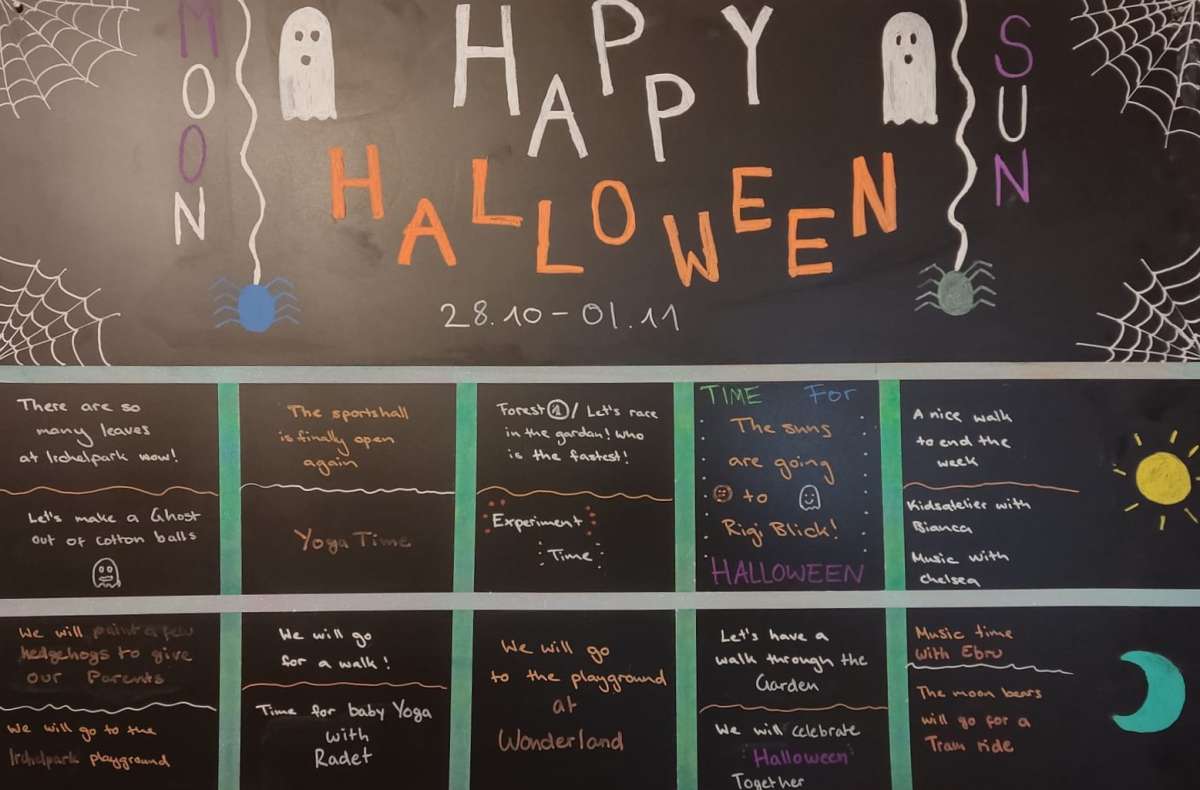 MOON
HAPPY
SUN
HALLOWEEN
28.10 - 01.11
There are so
many leaves
at Irchelpark wow!
Let's make a Ghost
out of cotton balls
The sportshall
is finally open
again
Yoga Time
Forest / Let's race
in the gardan! Who
is the fastest!
Experiment
Time
TIME FOR
The suns
are going
to
Rigi Blick!
HALLOWEEN
A nice walk
to end the
week
Kidsatelier with
Bianca
Music with
chelsea
We will paint a few
hedgehogs to give
our Parents
We will go to the
Irchelpark playground
We will go
for a walk!
Time for baby Yoga
with
Radet
We will go
to the playground
at
Wonderland
Let's have a
walk through the
Garden
We will celebrate
Halloween
Together
Music time
with Ebru
The moon bears
will go for a
Tram ride